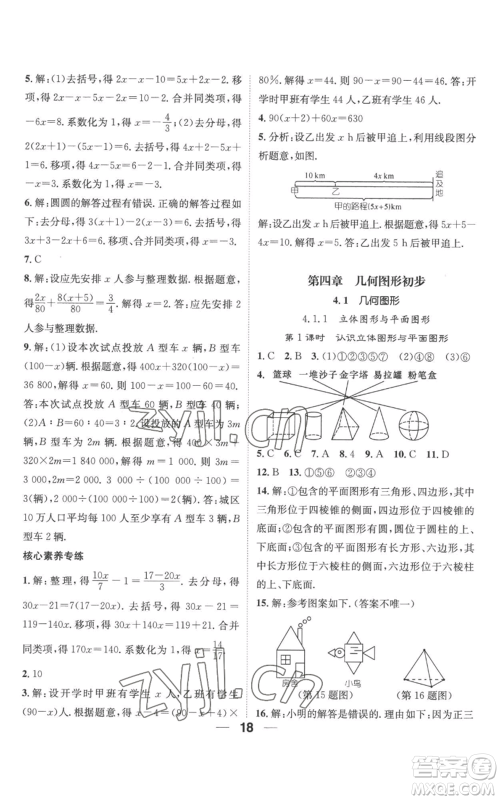 5. 解：(1)去括号，得 2x－x－10＝5x＋2x－2. 移
项，得 2x－x－5x－2x＝10－2. 合并同类项，得
－6x＝8. 系数化为 1，得 x＝－4/3；(2)去分母，得
2(2x＋1)－(5x－1)＝6. 去括号，得 4x＋2－5x＋
1＝6. 移项，得 4x－5x＝6－2－1. 合并同类项，得
－x＝3. 系数化为 1，得 x＝－3.
6. 解：圆圆的解答过程有错误. 正确的解答过程如
下：去分母，得 3(x＋1)－2(x－3)＝6. 去括号，得
3x＋3－2x＋6＝6. 移项、合并同类项，得 x＝－3.
7. C
8. 解：设应先安排 x 人参与整理数据. 根据题意，
得 2x/80＋8(x＋5)/80＝3/4. 解得 x＝2. 答：应先安排
2 人参与整理数据.
9. 解：(1)设本次试点投放 A 型车 x 辆，则 B 型车
(100－x)辆. 根据题意，得 400x＋320(100－x)＝
36 800，解得 x＝60. 所以 100－x＝100－60＝40.
答：本次试点投放 A 型车 60 辆，B 型车 40 辆；
(2)A：B＝60：40＝3：2. 设投放的 A 型车为
3m 辆，则 B 型车为 2m 辆. 根据题意，得 3m×
400＋2m×320＝1 840 000，解得 m＝1 000. 所以
3m＝3 000，2m＝2 000. 3 000÷(100 000÷100)＝
3(辆)，2 000÷(100 000÷100)＝2(辆). 答：城区
10 万人口平均每 100 人享有 A 型车 3 辆，享有
B 型车 2 辆.
核心素养专练
1. 解：整理，得 10x/7－1＝(17－20x)/3. 去分母，得
30x－21＝7(17－20x). 去括号，得 30x－21＝
119－140x. 移项、合并同类项，得 30x＋140x＝21＋
119. 得 170x＝140. 系数化为 1，得 x＝14/17.
2. 10
3. 解：设开学时甲班有学生 x 人，则乙班有学生
(90－x)人. 根据题意，得 x－4＝[(90－x)＋4]×
80%. 解得 x＝44. 所以 90－x＝90－44＝46. 答：开
学时甲班有学生 44 人，乙班有学生 46 人.
4. 90(x＋1)＋40x＝630
5. 分析：设乙出发 x h 后被甲追上，利用线段图分
析题意，如图所示.
10 km 4x km 追
甲 乙 及
甲的路程(5x＋5)km 地
解：设乙出发 x h 后被甲追上. 根据题意，得 5x＋
5＝4x＋10，解得 x＝5. 答：乙出发 5 h 后被甲
追上.
第四章 几何图形初步
4.1 几何图形
4.1.1 立体图形与平面图形
第 1 课时 认识立体图形与平面图形
1. C 2. B 3. (1)①②③④ (2)⑤⑥ (3)⑥
4. 篮球 一堆沙子 金字塔 易拉罐 粉笔盒
5. C 6. C 7. C
12. B 13. ①⑤⑥ ②③④
14. 解：①包含的平面图形有三角形、四边形，其中
三角形位于四棱锥的侧面，四边形位于四棱锥的
底面；②包含的平面图形有圆，圆位于圆柱的上、下
底面；③包含的平面图形有长方形、六边形，其中长
方形位于六棱柱的侧面，六边形位于六棱柱的上、
下底面.
15. 解：参考图案如下. (答案不唯一)
房舍 小鸟
(第 15 题图) (第 16 题图)
16. 解：小明的解答是错误的. 因为正三
18
zyjl.cn
zyjl.cn